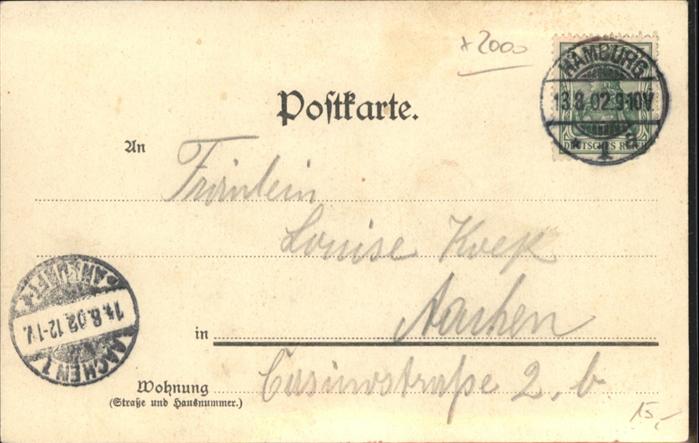 x 2000
HAMBURG
13.8.02.9-10V.
* 1 a
DEUTSCHES REICH
Postkarte.
An
Fräulein
Louise Koep
in Aachen
Wohnung Casinostraße 2, b.
(Straße und Hausnummer.)
ANKUNFT
14.8.02.12-1V.
AACHEN 1
15,-